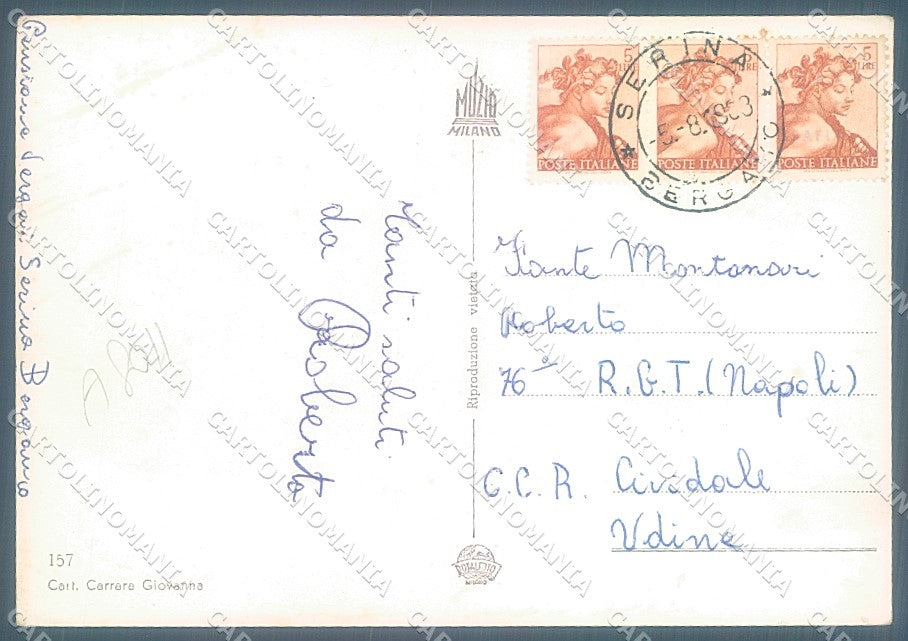 Tanti saluti
da Roberta
Serina Bergamo
MUZIO
MILANO
Riproduzione vietata
MILANO
157
Cart. Carrara Giovanna
5
LIRE
POSTE ITALIANE
5
LIRE
POSTE ITALIANE
5
LIRE
POSTE ITALIANE
SERINA
BERGAMO
Montanari
Roberto
76º R.G.T. (Napoli)
C.C.R. Cividale
Udine
CARTOLINOMANIA